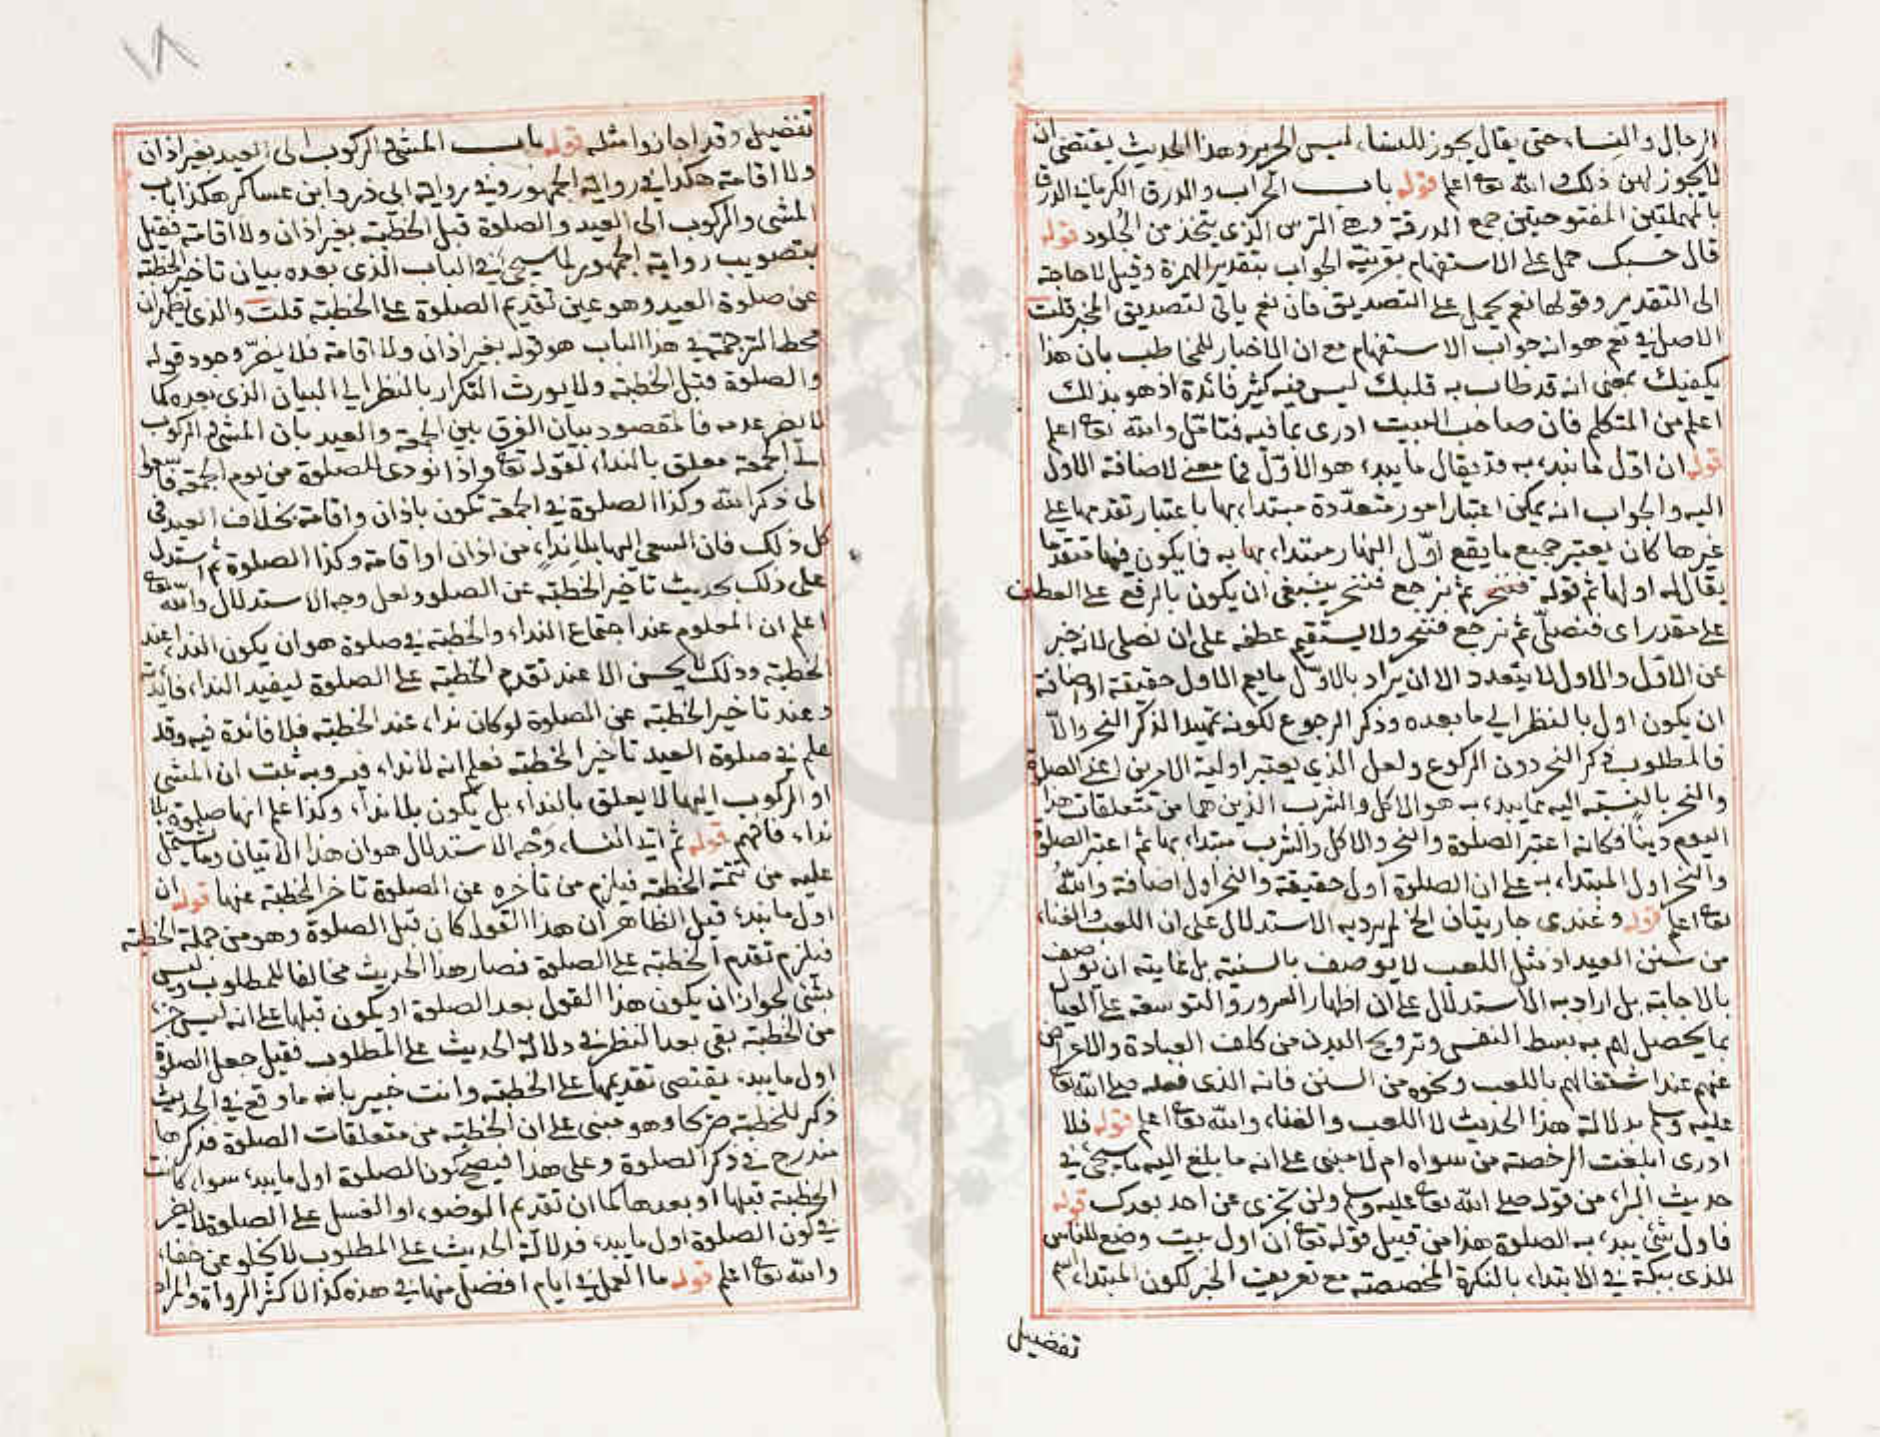 الرجال والنساء حتى يقال يجوز للنساء لبس الحرير وهذا الحديث يقتضى ان
لا يجوز لهن ذلك والله تعا اعلم قوله باب الحراب والدرق الكرمانى الدرق
بالمهملتين المفتوحتين جمع الدرقة وهى الترس الذى يتخذ من الجلود قوله
قال حسبك حمل على الاستفهام بقرينة الجواب بتقدير الهمزة وقيل لا حاجة
الى التقدير وقولها نعم يحمل على التصديق فان نعم ياتى لتصديق الخبر قلت
الاصل فى نعم هو انه جواب الاستفهام مع ان الاخبار للمخاطب بان هذا
يكفيك بمعنى انه قد طاب به قلبك ليس فيه كثير فائدة اذ هو بذلك
اعلم من المتكلم فان صاحب البيت ادرى بما فيه فتامّل والله تعا اعلم
قوله ان اوّل ما نبدء به قد يقال ما يبدء هو الاوّل فما معنى لاضافة الاول
اليه والجواب انه يمكن اعتبار امور متعدّدة مبتداء بها باعتبار تقدمها على
غيرها كان يعتبر جميع ما يقع اوّل النهار مبتداء بها به فما يكون فيها متقدما
يقال له اولها ثم قوله فننحر ثم نرجع فننحر ينبغى ان يكون بالرفع على العطف
على مقدر اى فنصلّى ثم نرجع فننحر ولا يستقيم عطفه على ان نصلى لانه خبر
عن الاوّل والاول لا يتعدد الا ان يراد بالاوّل ما يعم الاول حقيقة او اضافة
ان يكون اول بالنظر الى ما بعده وذكر الرجوع لكونه تمهيدا لذكر النحر والّا
فالمطلوب ذكر النحر دون الركوع ولعل الذى يعتبر اولية الامرين اعنى الصلوة
والنحر بالنسبة اليه مما يبدء به هو الاكل والشرب الذين هما من متعلقات هذا
اليوم دينًا فكانه اعتبر الصلوة والنحر والاكل والشرب مبتداء بها ثم اعتبر الصلوة
والنحر اول المبتداء به على ان الصلوة اول حقيقة والنحر اول اضافة واللهُ
تعا اعلم قوله وعندى جاريتان الخ لم يرد به الاستدلال على ان اللعب والغناء
من سنن العيد اذ مثل اللعب لا يوصف بالسنية بل غايته ان يوصف
بالاجابة بل اراد به الاستدلال على ان اظهار السرور والتوسعة على العيال
بما يحصل لهم به بسط النفس وترويح البدن من كلف العبادة والاعراض
عنهم عند اشتغالهم باللعب ونحوه من السنن فانه الذى فعله صلى الله تعا
عليه وسلم بدلالة هذا الحديث لا اللعب والغناء والله تعا اعلم قوله فلا
ادرى ابلغت الرخصة من سواه ام لا مبنى على انه ما بلغ اليه ما سيجىء فى
حديث البراء من قوله صلى الله تعا عليه وسلم ولن تجزى عن احد بعدك قوله
فاول شئ يبدء به الصلوة هذا من قبيل قوله تعا ان اول بيت وضع للناس
للذى ببكة فى الابتداء بالنكرة المخصصة مع تعريف الخبر لكون المبتداء اسم
تفضيل
١٨
تفضيل وقد اجازوا مثله قوله باب المشى والركوب الى العيد بغير اذان
ولا اقامة هكذا فى رواية الجمهور وفى رواية ابى ذر وابن عساكر هكذا باب
المشى والركوب الى العيد والصلوة قبل الخطبة بغير اذان ولا اقامة فقيل
بتصويب رواية الجمهور لما سيجىء فى الباب الذى بعده بيان تاخير الخطبة
عن صلوة العيد وهو عين تقديم الصلوة على الخطبة قلت والذى يظهر ان
محط الترجمة فى هذا الباب هو قوله بغير اذان ولا اقامة فلا يضرّ وجود قوله
والصلوة قبل الخطبة ولا يورث التكرار بالنظر الى البيان الذى بعده كما
لا يضر عدمه فالمقصود بيان الفرق بين الجمعة والعيد بان المشى والركوب
الى الجمعة معلق بالنداء لقوله تعا واذا نودى للصلوة من يوم الجمعة فاسعوا
الى ذكر الله وكذا الصلوة فى الجمعة تكون باذان واقامة بخلاف العيد فى
كل ذلك فان السعى اليها بلا نِداءٍ من اذان او اقامة وكذا الصلوة ثم استدل
على ذلك بحديث تاخير الخطبة عن الصلوة ولعل وجه الاستدلال والله تعا
اعلم ان المعلوم عند اجتماع النداء والخطبة فى صلوة هو ان يكون النداء عند
الخطبة وذلك لا يحسن الا عند تقدم الخطبة على الصلوة ليفيد النداء فائدته
وعند تاخير الخطبة عن الصلوة لو كان نداء عند الخطبة فلا فائدة فيه وقد
علم فى صلوة العيد تاخير الخطبة فعلم انه لا نداء فيه وبه ثبت ان المشى
او الركوب اليها لا يعلق بالنداء بل يكون بلا نداء وكذا علم انها صلوة بلا
نداء فافهم قوله ثم اتى النساء وجه الاستدلال هو ان هذا الاتيان وما يشتمل
عليه من تتمة الخطبة فيلزم من تأخره عن الصلوة تاخر الخطبة عنها قوله ان
اول ما نبدء قيل الظاهر ان هذا القول كان قبل الصلوة وهو من جملة الخطبة
فيلزم تقدم الخطبة على الصلوة فصار هذا الحديث مخالفا للمطلوب وليس
بشئ لجواز ان يكون هذا القول بعد الصلوة او يكون قبلها على انه ليس جزء
من الخطبة بقى بعد النظر فى دلالة الحديث على المطلوب فقيل جعل الصلوة
اول ما يبدء يقتضى تقديمها على الخطبة وانت خبير بانه ما وقع فى الحديث
ذكر للخطبة صريحا وهو مبنى على ان الخطبة من متعلقات الصلوة فذكرها
مندرج فى ذكر الصلوة وعلى هذا فيصح كون الصلوة اول ما يبدء سواء كانت
الخطبة قبلها او بعدها كما ان تقديم الوضوء او الغسل على الصلوة لا يضر
فى كون الصلوة اول ما يبدء فدلالة الحديث على المطلوب لا تخلو عن خفاء
والله تعا اعلم قوله ما العمل فى ايام افضل منها فى هذه كذا لاكثر الرواة والمراد